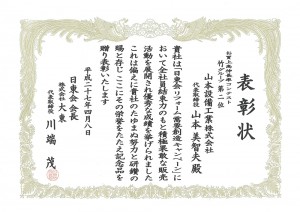 表彰状
新規上施件基準コンテスト
竹グループ 第二位
山本設備工業株式会社
代表取締役 山本 美智夫殿
貴社は「日東会リフォーム需要創造キャンペーン」に
おいて全社員結束力のもと積極果敢な販売
活動を展開され優秀な成績を挙げられました
これは偏えに貴社のたゆまぬ努力と研鑽の
賜と存じここにその栄誉をたたえ記念品を
贈り表彰いたします
平成二十六年四月八日
日東会 会長
株式会社 大東
代表取締役 川端 茂